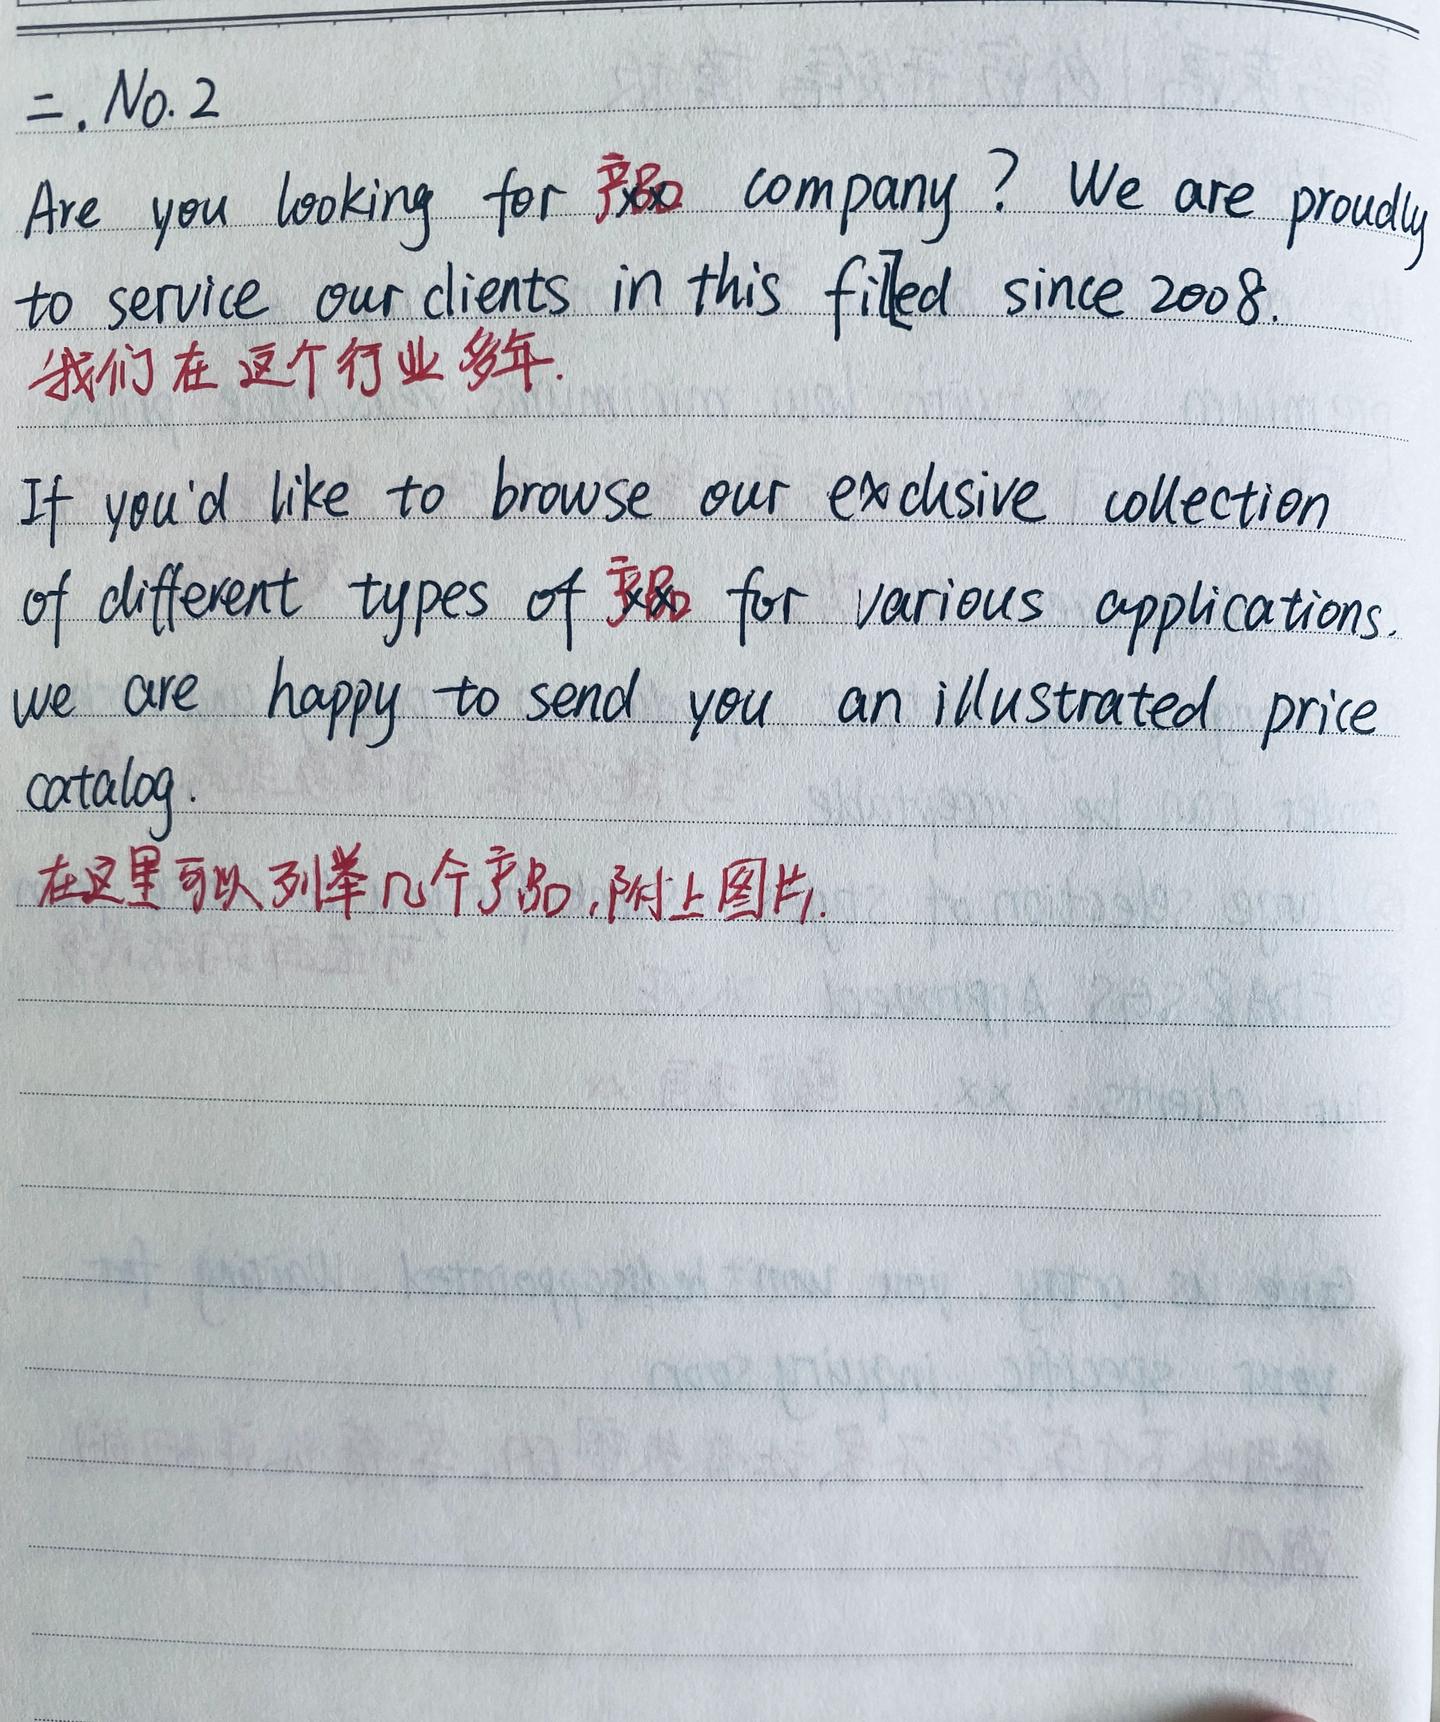 二. No. 2
Are you looking for 产品 company? We are proudly
to service our clients in this filed since 2008.
我们在这个行业多年.
If you'd like to browse our exclusive collection
of different types of 产品 for various applications.
we are happy to send you an illustrated price
catalog.
在这里可以列举几个产品,附上图片.